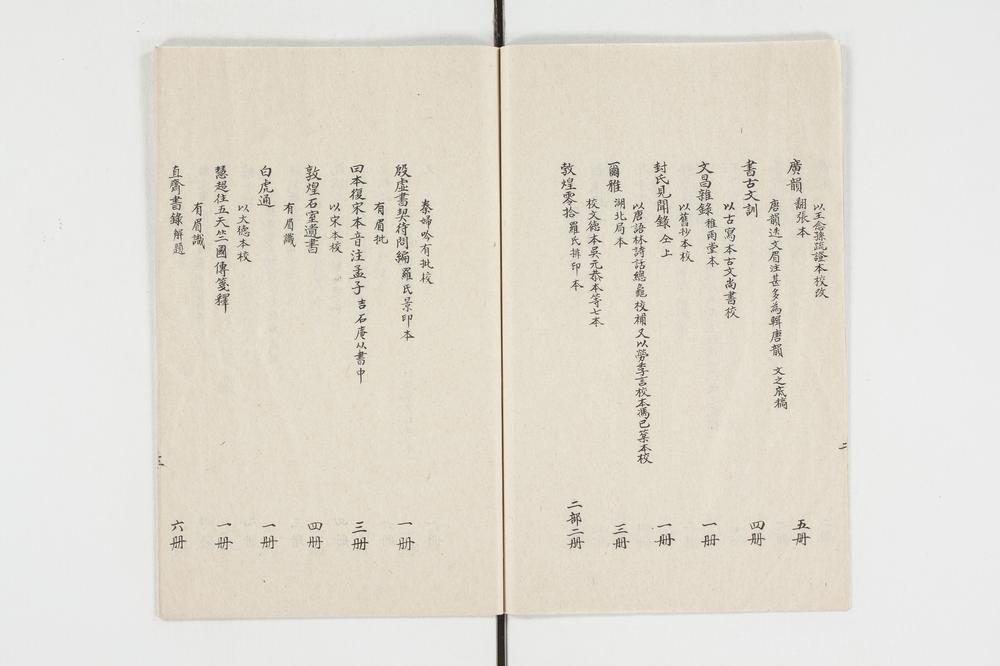 以王念孫疏證本校改
廣韻 翻張本 五册
唐韻迻文眉注甚多為輯唐韻 文之底稿
書古文訓 四册
以古寫本古文尚書校
文昌雜錄 雅雨堂本 一册
以舊抄本校
封氏見聞錄 仝上 一册
以唐語林詩話總龜校補又以勞季言校本馮已蒼本校
爾雅 湖北局本 三册
校文德本吳元恭本等七本
敦煌零拾 羅氏排印本 二部二册
二
秦婦吟有批校
殷虛書契待問編 羅氏景印本 一册
有眉批
日本復宋本音注孟子 吉石庵丛書中 三册
以宋本校
敦煌石室遺書 四册
有眉識
白虎通 一册
以大德本校
慧超往五天竺國傳箋釋 一册
有眉識
直齋書錄解題 六册
三